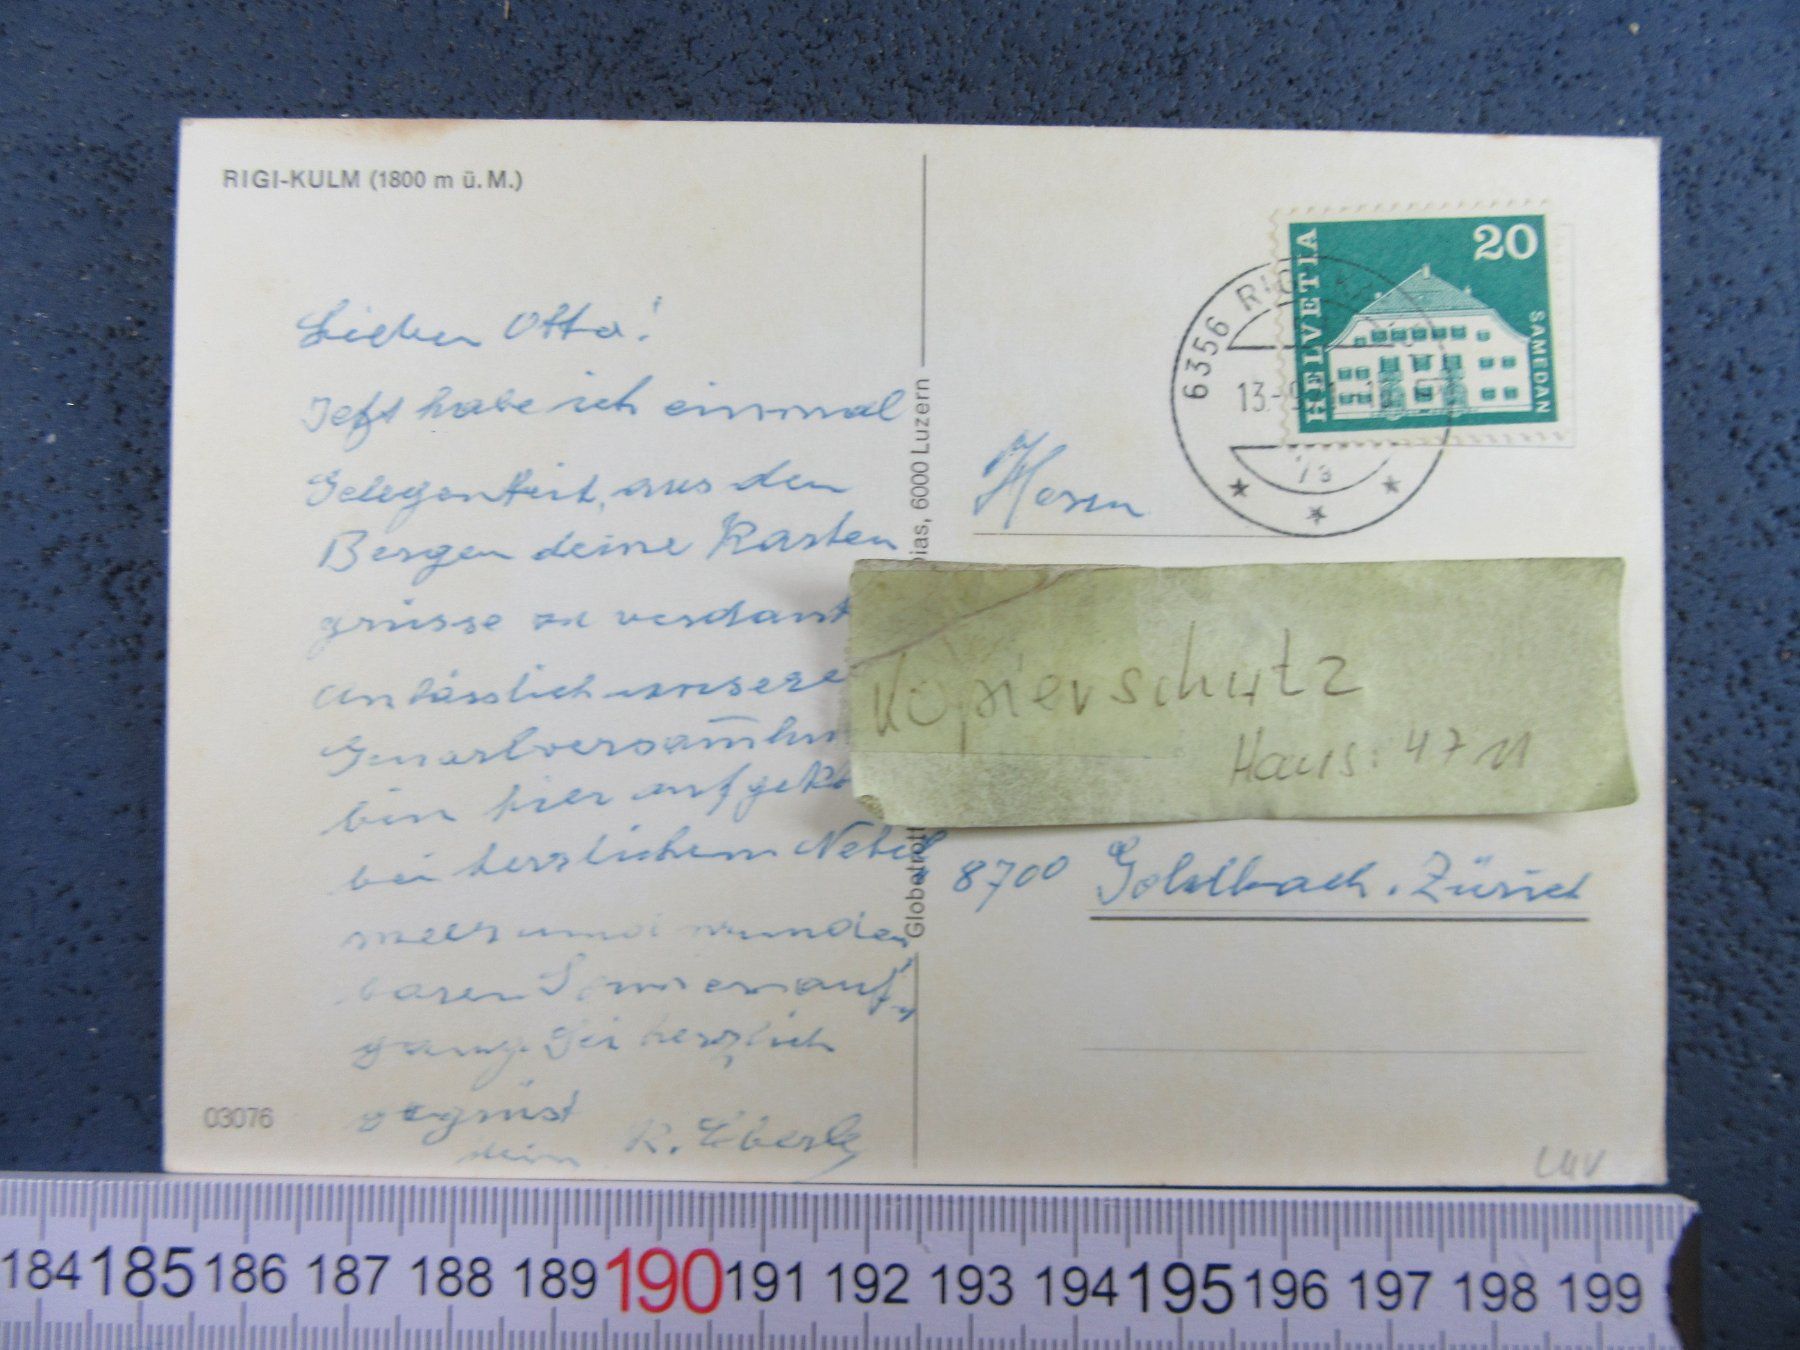 RIGI-KULM (1800 m ü. M.)
Lieber Otto!
Jetzt habe ich einmal
Gelegenheit, aus den
Bergen deine Karten
grüsse zu verdank
anlässlich unserer
Generalversam̄lun
bin hier auf
bei herrlichem Nebel
meer und wunder
baren Sonnenauf-
gang. Sei herzlich
gegrüsst
dein R. Eberle
03076
Globetrott
ias, 6000 Luzern
HELVETIA
20
SAMEDAN
6356 RIGI
13.-9
Herrn
Kopierschutz
Haus: 4711
8700 Goldbach. Zürich
184 185 186 187 188 189 190 191 192 193 194 195 196 197 198 199